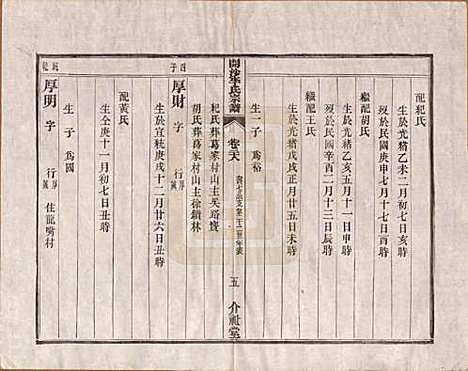 配杞氏
生於光緒乙未二月初七日亥時
歿於民國庚申七月十七日酉時
繼配胡氏
生於光緒乙亥五月十一日申時
歿於民國辛酉二月十三日辰時
繼配王氏
生於光緒戊戌正月廿五日未時
生一子 爲裕
開沙李氏宗譜
卷三六
五
介祉堂
杞氏葬葛家村山主吳路寶
胡氏葬葛家村山主徐鎖林
四子
厚財 字 行厚
生於宣統庚戌十二月廿六日丑時
厚明 字 行厚 住龍嘴村
生 子 爲國
配黃氏
生仝庚十一月初七日丑時